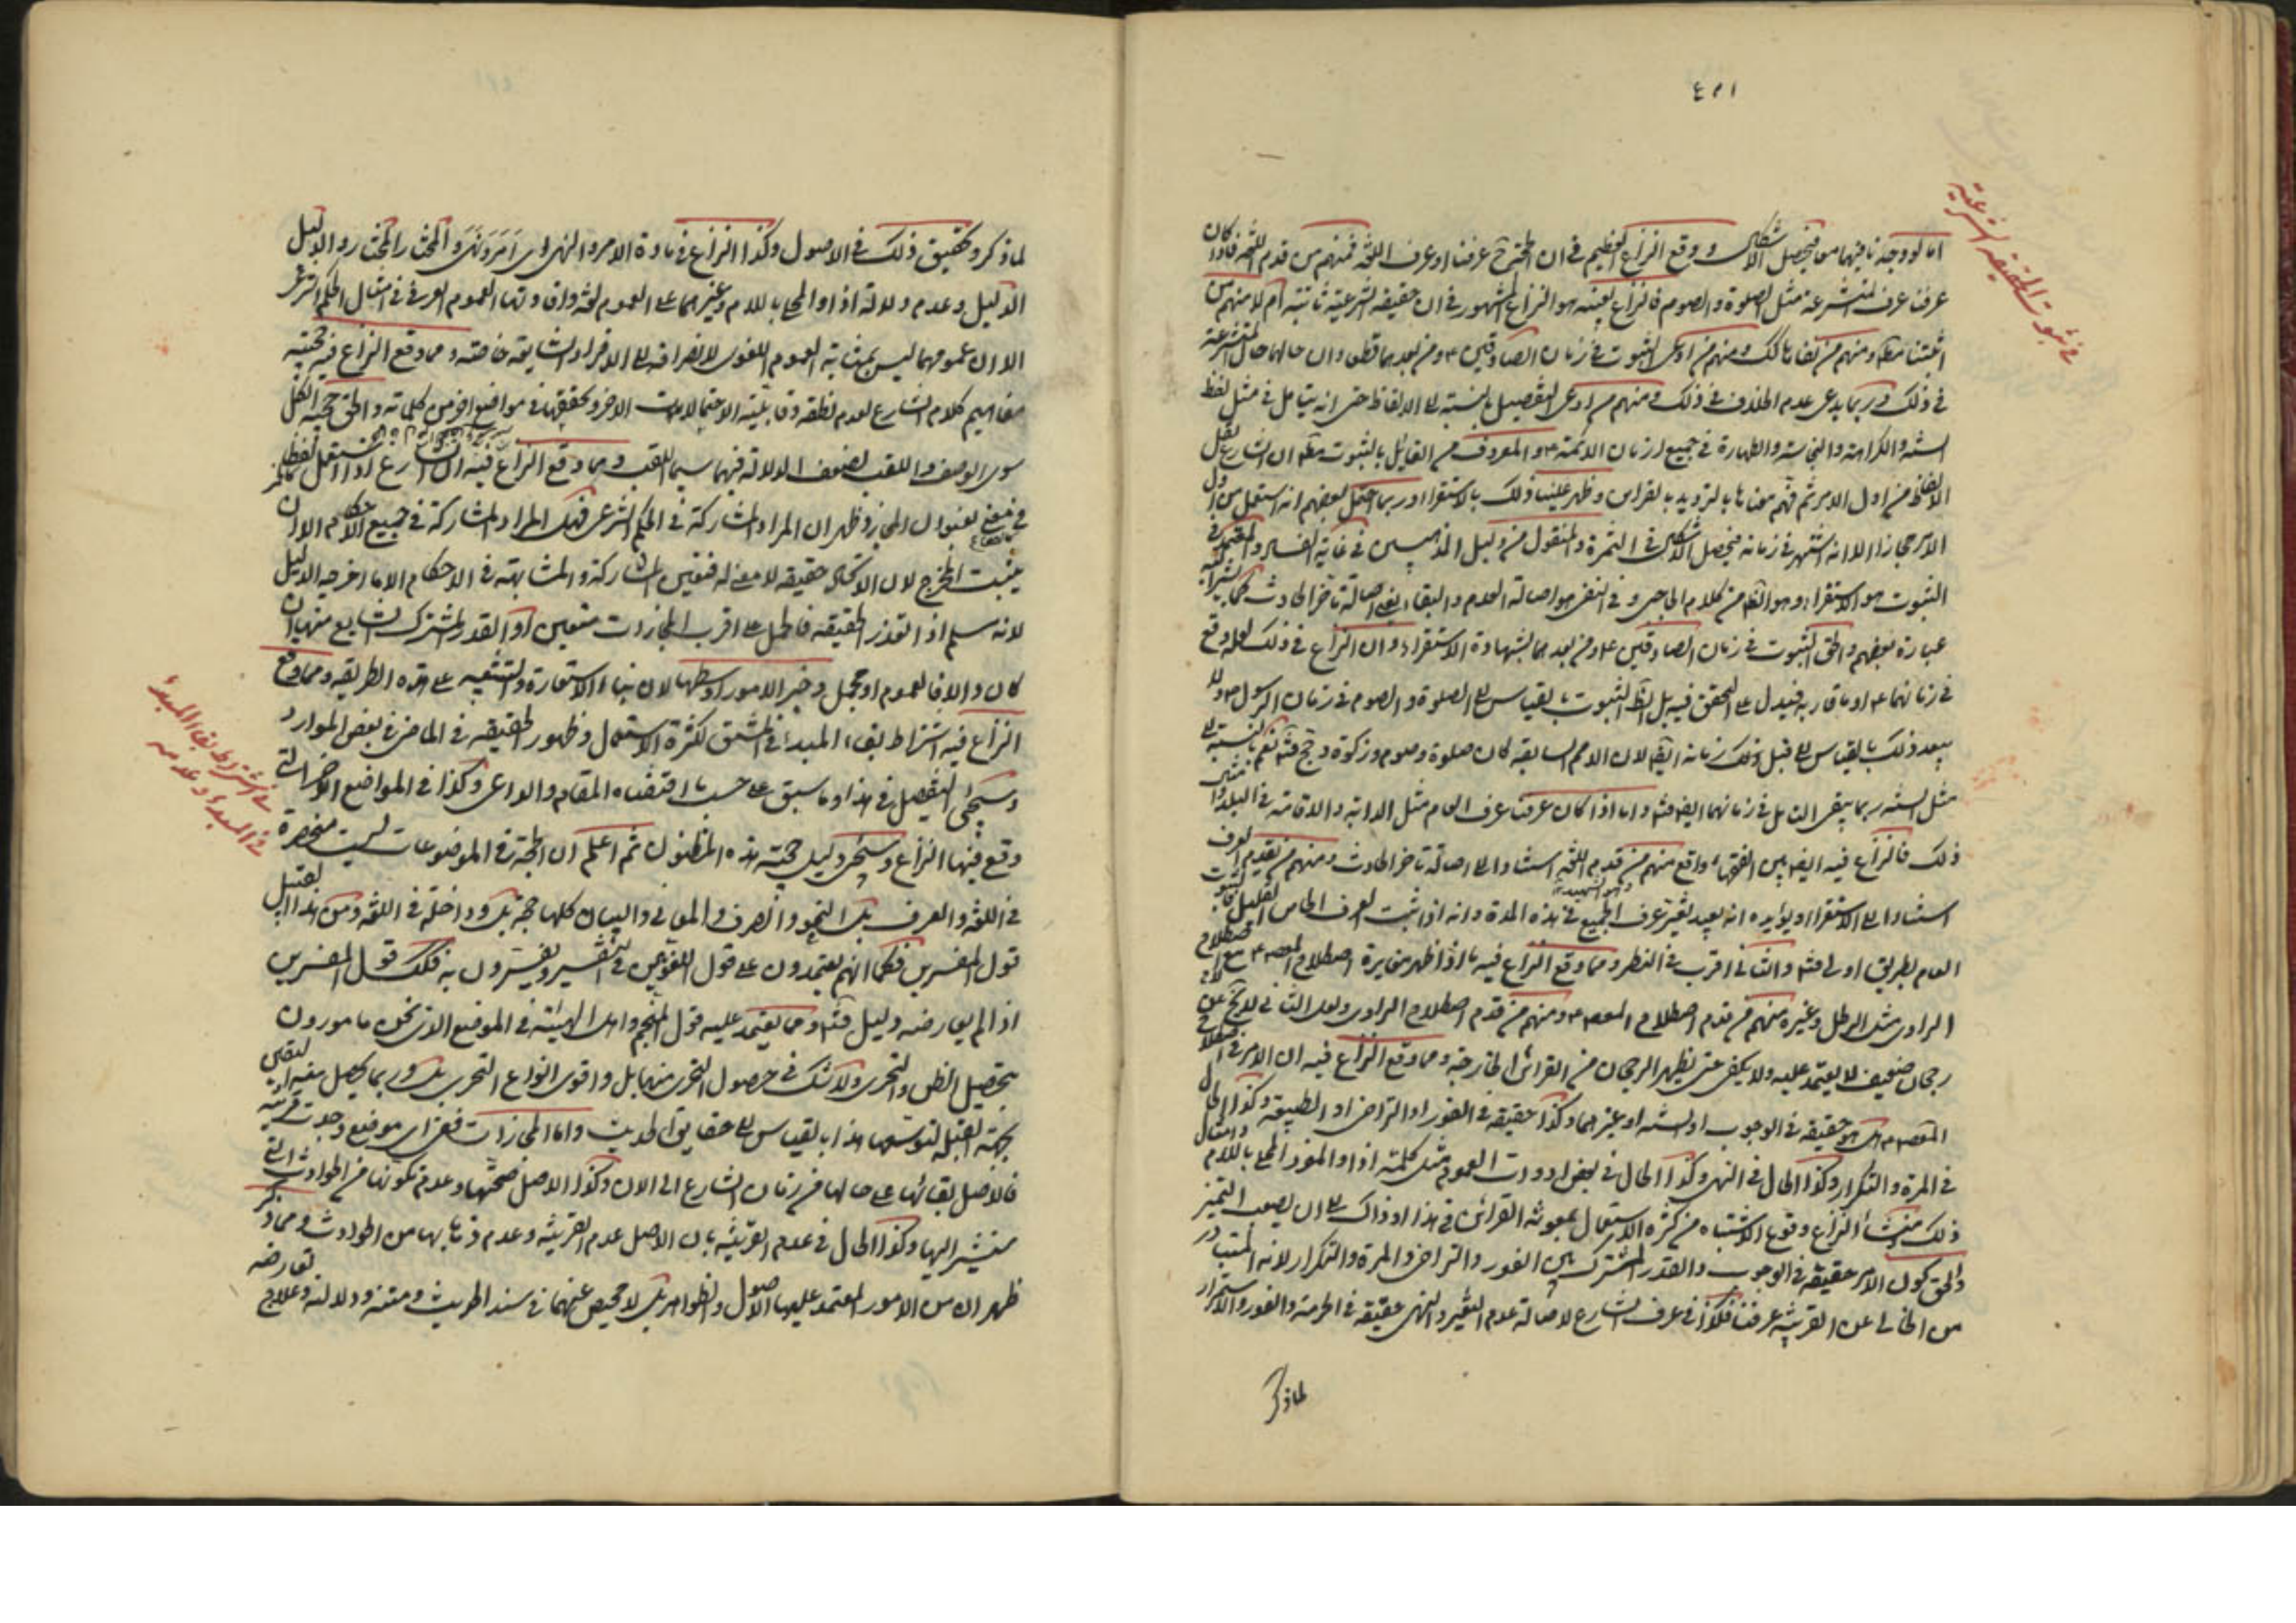 في ثبوت الحقيقة الشرعية
اما لو وجد تافيهما معا فيحصل الاشكال ووقع النزاع العظيم في ان المرجح عرفنا او عرف اللغة فمنهم من قدم اللغة فاذا كان
عرفنا عرف المتشرعة مثل الصلوة والصوم فالنزاع بعينه هو النزاع المشهور في ان الحقيقة الشرعية ثابتة ام لا منهم من
اثبتها مطلقا ومنهم من نفاها كذلك ومنهم من ادعى الثبوت في زمان الصادقين ومن بعدهما قطعا وان حالهما حال المتشرعة
في ذلك وربما يدعى عدم الخلاف في ذلك ومنهم من ادعى التفصيل بالنسبة الى الالفاظ حتى انه يتامل في مثل لفظ
السنة والكراهة والنجاسة والطهارة في جميع ازمان الائمة والمعروف من القائل بالثبوت مطلقا ان الشارع نقل
الالفاظ من اول الامر ثم فهم معناها بالترديد بالقراين وظهر علينا ذلك بالاستقراء وربما احتمل بعضهم انه استعمل من اول
الامر مجازا الا انه اشتهر في زمانه فيحصل الاشكال في الثمرة والمنقول من دليل المذهبين في غاية الفساد والمعتمد في
الثبوت هو الاستقراء وهو الظاهر من كلام الحاجبي وفي النفي هو اصالة العدم والبقاء يعني اصالة تاخر الحادث كما
عبارة بعضهم والحق الثبوت في زمان الصادقين ومن بعدهما بشهادة الاستقراء وان النزاع في ذلك لعله وقع
في زمانهما او ما قاربه فيدل على التحقق فيه بل الظاهر الثبوت بالقياس الى الصلوة والصوم في زمان الرسول ولا
يبعد ذلك بالقياس الى قبل ذلك زمانه ايضا لان الامم السابقة كان صلوة وصوم وزكوة وحج فتأمل نعم بالنسبة الى
مثل السنة ربما يبقى التامل في زمانهما ايضا فتأمل واما اذا كان عرفنا عرف العام مثل الدابة والاقامة في البلد وامثال
ذلك فالنزاع فيه ايضا بين الفقهاء واقع منهم من قدم اللغة استنادا الى اصالة تاخر الحادث ومنهم من يقدم العرف
استنادا الى الاستقراء ويؤيده انه يبعد تغير عرف الجميع في هذه المدة وانه اذا ثبت العرف الخاص
العام بطريق اولى فتأمل والثاني اقرب في النظر ومما وقع النزاع فيه ما اذا ظهر مغايرة اصطلاح المعصوم مع اصطلاح
الراوي مثل الرطل وغيره منهم من قدم اصطلاح المعصوم ومنهم من قدم اصطلاح الراوي ولعل الثاني لا يخ عن
رجحان ضعيف لا يعتمد عليه ولا يكفي حتى يظهر الرجحان من القراين الخارجة ومما وقع النزاع فيه ان الامر في اصطلاح
المعصوم هل هو حقيقة في الوجوب او السنة او غيرهما وكذا حقيقة في الفور او التراخي او الطبيعة وكذا الحال
في المرة والتكرار وكذا الحال في النهي وكذا الحال في بعض ادوات العموم مثل كلمة اذا والمفرد المحلى باللام وامثال
ذلك ومنشأ النزاع وقوع الاشتباه من كثرة الاستعمال بمعونة القراين في هذا او ذاك الى ان يصعب التميز
والحق كون الامر حقيقة في الوجوب والقدر المشترك بين الفور والتراخي والمرة والتكرار لانه المتبادر
من الخالي عن القرينة عرفنا فكذا في عرف الشارع لاصالة عدم التغير والنهي حقيقة في الحرمة والفور والاستمرار
لما ذكر
لما ذكر وتحقيق ذلك في الاصول وكذا النزاع في مادة الامر والنهي اي امر ونهى والمختار المختار والدليل
الدليل وعدم دلالة اذا والمحلى باللام وغيرهما على العموم لغة وافادتها العموم العرفي في امثال الحكم الشرعي
الا ان عمومهما ليس بمثابة العموم اللغوي لانصرافه الى الافراد الشايعة خاصة ومما وقع النزاع فيه حجية
مفاهيم كلام الشارع لعدم نطقه وقابلية الاحتمالات الاخر وتحققها في مواضع اخر من كلماته والحق حجية الكل
سوى الوصف واللقب لضعف الدلالة فيهما سيما اللقب ومما وقع النزاع فيه ان الشارع اذا استعمل لفظا
في موضع بعنوان المجاز وظهر ان المراد المشاركة في الحكم الشرعي فهل المراد المشاركة في جميع الاحكام الا ان
يثبت المخرج لان الاتحاد حقيقة لا معنى له فتعين المشاركة والمشابهة في الاحكام الا ما اخرجه الدليل
لانه مسلم اذا تعذر الحقيقة فالحمل على اقرب المجازات متعين او القدر المشترك الشايع منها ان
كان والا فالعموم او مجمل وخير الامور اوسطها لان بناء الاستعارة والتشبيه على هذه الطريقة ومما وقع
النزاع فيه اشتراط بقاء المبدء في المشتق لكثرة الاستعمال وظهور الحقيقة في الماضي في بعض الموارد
في اشتراط بقاء المبدء
في المبدء وعدمه
وسيجئ التفصيل في هذا وما سبق على حسب ما اقتضاه المقام والداعي وكذا في المواضع الاخر التي
وقع فيها النزاع وسيجئ دليل حجية هذه الظنون ثم اعلم ان الحجة في الموضوعات ليست منحصرة
في اللغة والعرف بل النحو والصرف والمعاني والبيان كلها حجة بل وداخلة في اللغة ومن هذا القبيل
قول المفسرين فكما انهم يعتمدون على قول اللغويين في التفسير ويفسرون به فكذلك قول المفسرين
اذا لم يعارضه دليل فتأمل ومما يعتمد عليه قول المنجم واهل الهيئة في الموضع الذي نحن مامورون
بتحصيل الظن والتحري ولا شك في حصول التحري منهما بل واقوى انواع التحري بل وربما يحصل منه اليقين
بجهة القبلة لتوسعها هذا بالقياس الى حقايق الحديث واما المجازات ففي اي موضع وجدت قرينة
فالاصل بقائها على حالها من زمان الشارع الى الان وكذا الاصل صحتها وعدم كونها من الحوادث التي
سنشير اليها وكذا الحال في عدم القرينة بان الاصل عدم القرينة وعدم ذهابها من الحوادث ومما ذكر
ظهر ان من الامور المعتمد عليها الاصول والظواهر بل لا محيص عنهما في سند الحديث ومتنه ودلالته وعلاج تعارضه